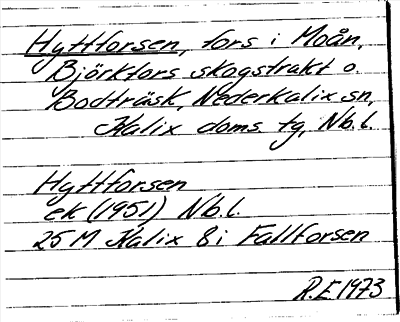 Hyttforsen, fors i Moån,
Björkfors skogstrakt o.
Bodträsk, Nederkalix sn,
Kalix doms. tg, Nb. l.
Hyttforsen
ek (1951) Nb. l.
25 M Kalix 8 i Fallforsen
R.E. 1973